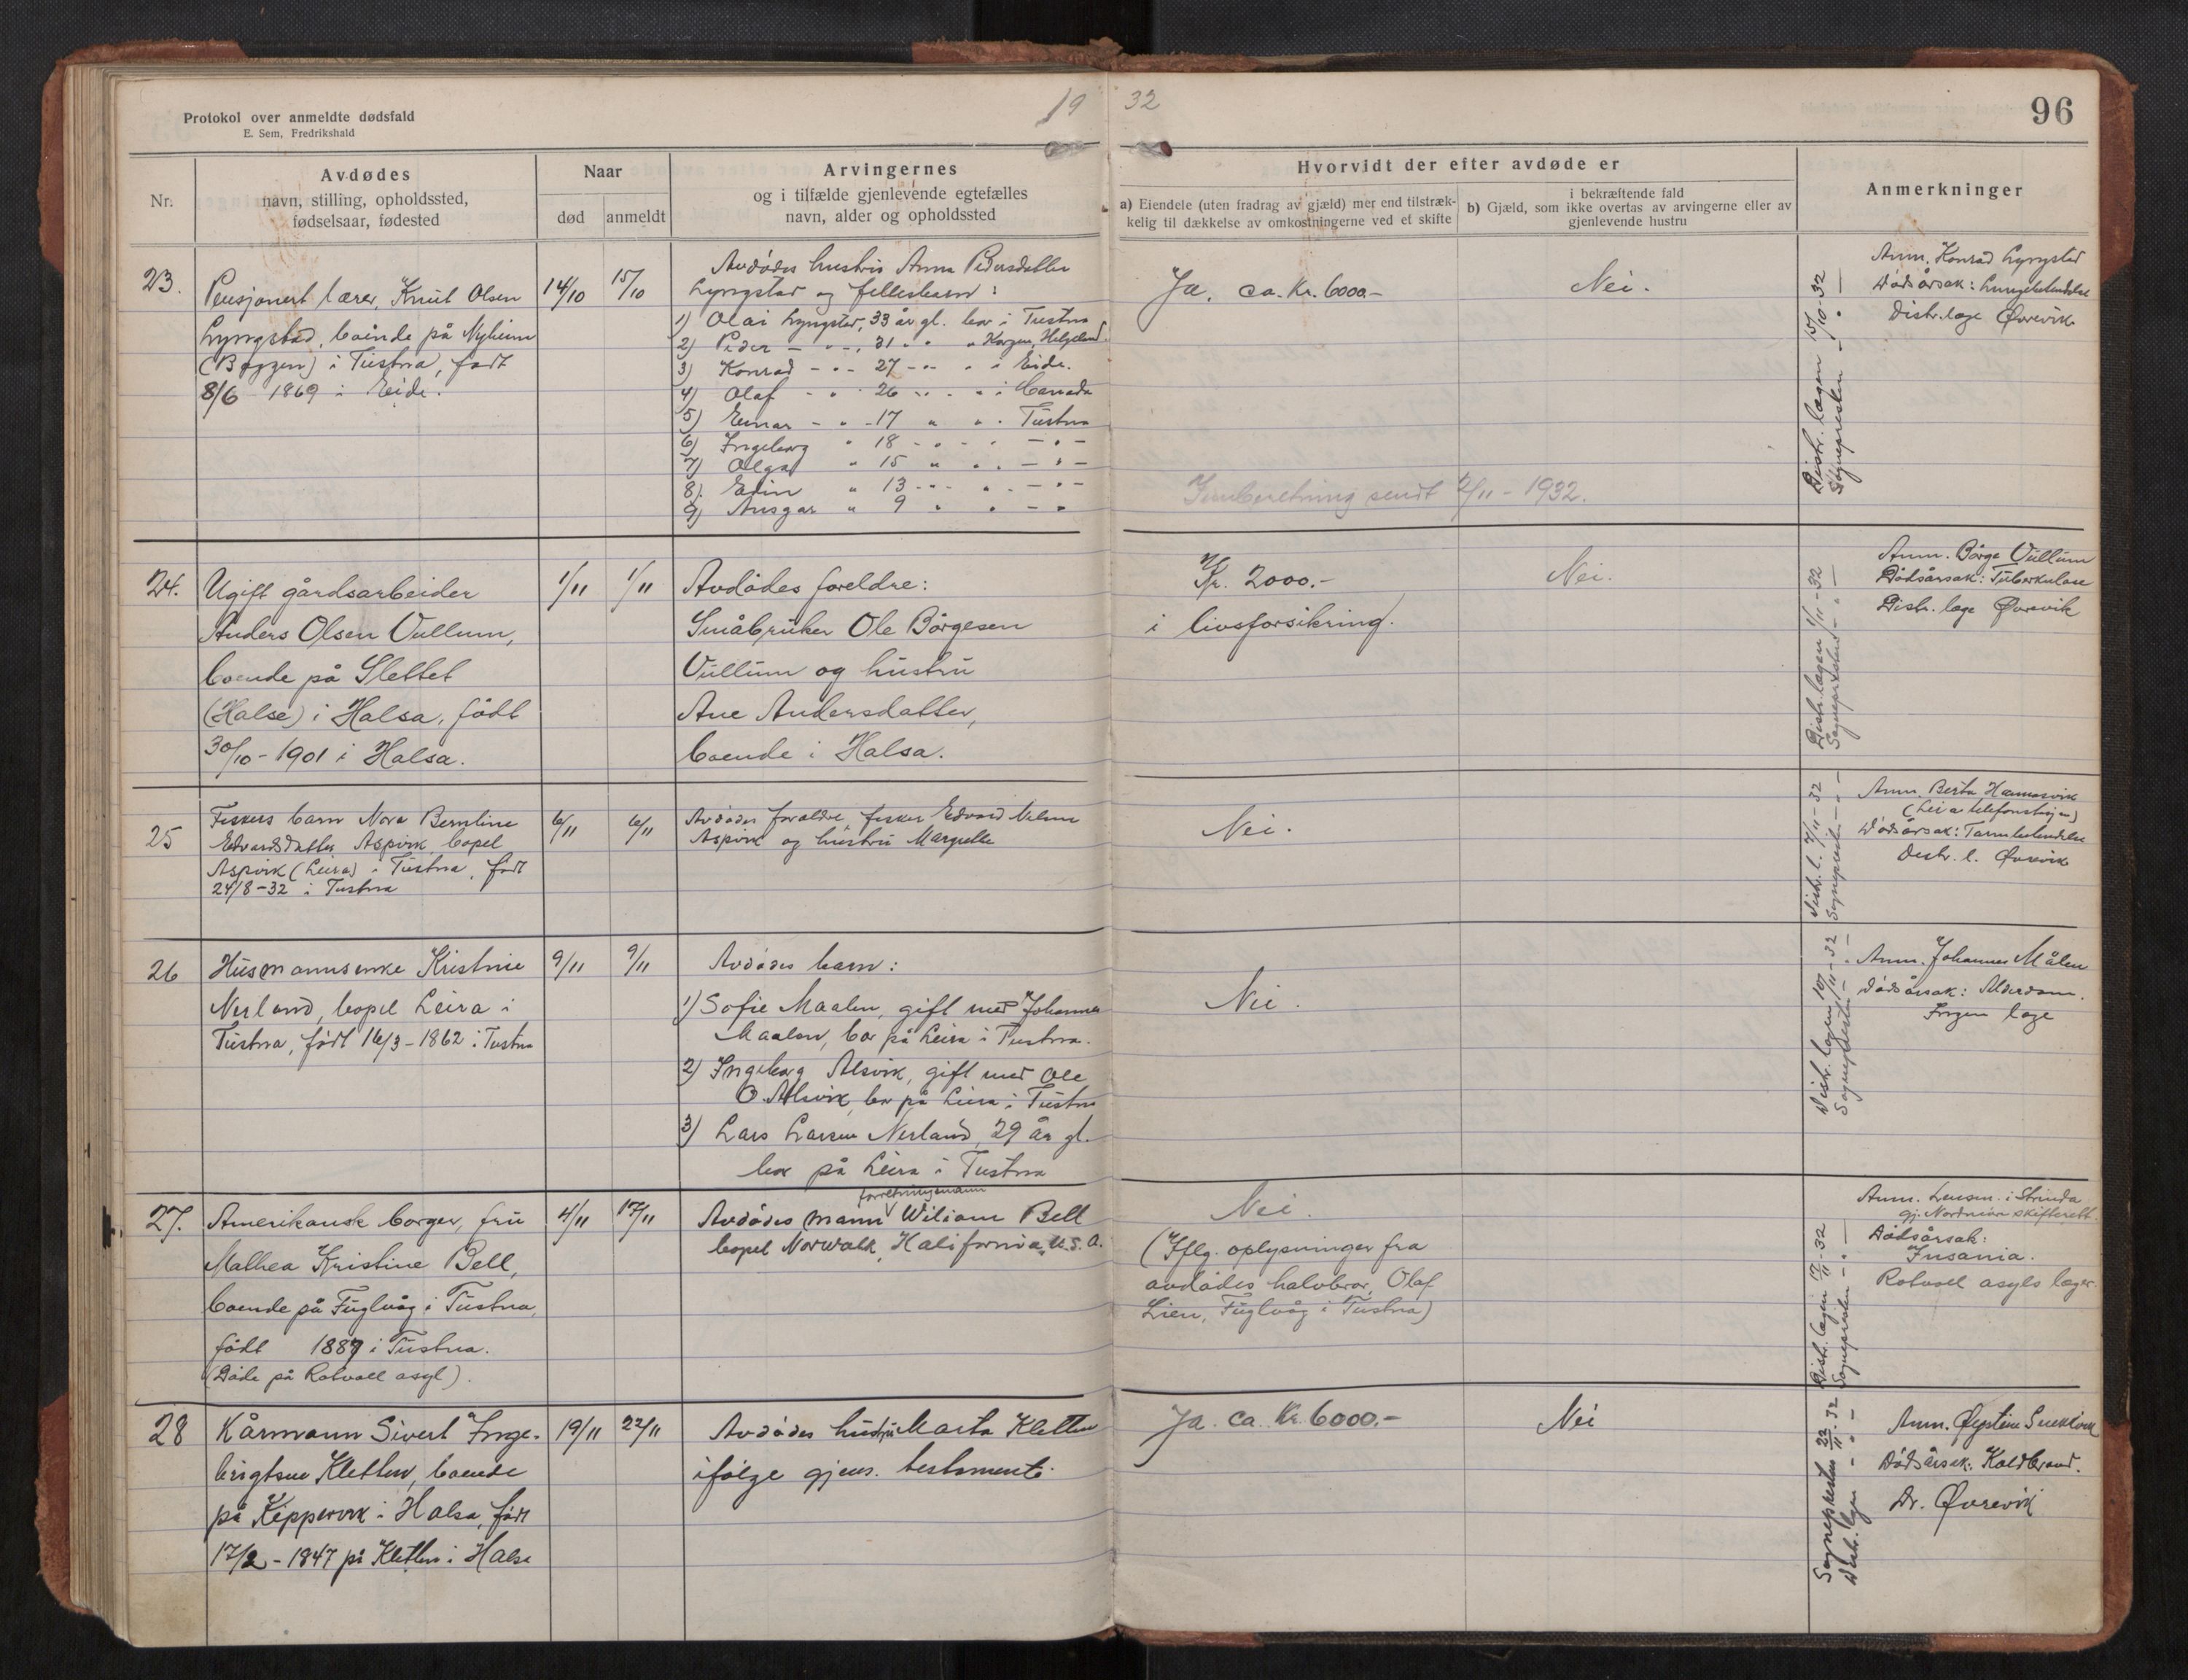 Protokol over anmeldte dødsfald
E. Sem, Fredrikshald
19 32
96
Nr.
Avdødes
navn, stilling, opholdssted,
fødselsaar, fødested
Naar
død
anmeldt
Arvingernes
og i tilfælde gjenlevende egtefælles
navn, alder og opholdssted
Hvorvidt der efter avdøde er
a) Eiendele (uten fradrag av gjæld) mer end tilstræk-
kelig til dækkelse av omkostningerne ved et skifte
i bekræftende fald
b) Gjæld, som ikke overtas av arvingerne eller av
gjenlevende hustru
Anmerkninger
23.
Pensjonert lærer, Knut Olsen
Lyngstad, boende på Nyheim
(Bøgzen) i Tustna, født
8/6 1869 i Eide.
14/10
15/10
Avdødes hustru Anna Pedersdatter
Lyngstad og fellesbarn:
1) Olai Lyngstad, 33 år gl. bor i Tustna
2) Peder — " —, 31 " " " Korgen, Helgeland.
3) Konrad - " - 27 - " - " i Eide.
4) Olaf - " 26 " - " i Canada
5) Einar - " - 17 " " " Tustna
6) Ingeborg " 18 - " - " — " —
7) Olga " 15 " " " — " —
8) Edin " 13 - " - " — " —
9) Ansgar " 9 " " — "
Ja. ca. Kr. 6000.-
Nei.
Innberetning sendt 2/11 - 1932.
Distr. lægen 15/10 - 32
Sognepresten - " —
Anm. Konrad Lyngstad
Dødsårsak: Lungebetendelse
Distr. læge Øvrevik
24.
Ugift gårdsarbeider
Anders Olsen Vullum,
boende på Slettet
(Halse) i Halsa, født
30/10 - 1901 i Halsa.
1/11
1/11
Avdødes foreldre:
Småbruker Ole Børgesen
Vullum og hustru
Ane Andersdatter,
boende i Halsa.
Kr. 2000.-
i livsforsikring.
Nei.
Distr. lægen 1/11 - 32
Sognepresten - " —
Anm. Børge Vullum
Dødsårsak: Tuberkulose
Distr. læge Øvrevik
25
Fiskers barn Nora Berntine
Edvardsdatter Aspvik, bopel
Aspvik (Leira) i Tustna, født
24/8 - 32 i Tustna
6/11
6/11
Avdødes foreldre, fisker Edvard Nilsen
Aspvik og hustru Margrethe
Nei.
Distr. l. 7/11 - 32
Sognepresten - " —
Anm. Berta Hamnesvik
(Leira telefonstasjon)
Dødsårsak: Tarmbetendelse
Distr. l. Øvrevik
26
Husmannsenke Kristine
Nerland, bopel Leira i
Tustna, født 16/3 - 1862 i Tustna
9/11
9/11
Avdødes barn:
1) Sofie Maalen, gift med Johannes
Maalen, bor på Leira i Tustna.
2) Ingeborg Alsvik, gift med Ole
O. Alsvik, bor på Leira i Tustna
3) Lars Larsen Nerland, 29 år gl.
bor på Leira i Tustna
Nei.
Distr. lægen 10/11 - 32
Sognepresten - " —
Anm. Johannes Målen
Dødsårsak: Alderdom.
Ingen læge
27.
Amerikansk borger, fru
Mathea Kristine Bell,
boende på Fuglvåg i Tustna,
født 1887 i Tustna.
(Døde på Rotvoll asyl).
4/11
17/11
forretningsmann
Avdødes mann Wiliam Bell
bopel Norwalk, Halifornia, U.S.A.
Nei.
(Iflg. oplysninger fra
avdødes halvbror, Olaf
Lien, Fuglvåg i Tustna)
Distr. lægen 17/11 - 32
Sognepresten - " —
Anm. Lensm. i Strinda
gj. Nordmøre skifterett.
Dødsårsak:
Insania.
Rotvoll asyls læger.
28
Kårmann Sivert Inge-
brigtsen Kletten, boende
på Kippervik i Halsa, født
17/2 - 1847 på Kletten i Halsa
19/11
22/11
Avdødes hustru Marta Kletten
ifølge gjens. testamente.
Ja. ca. Kr. 6000.-
Nei
Sognepresten 22/11 - 32
Distr. lægen - " —
Anm. Øystein
Dødsårsak: Koldbrand.
Dr. Øvrevik